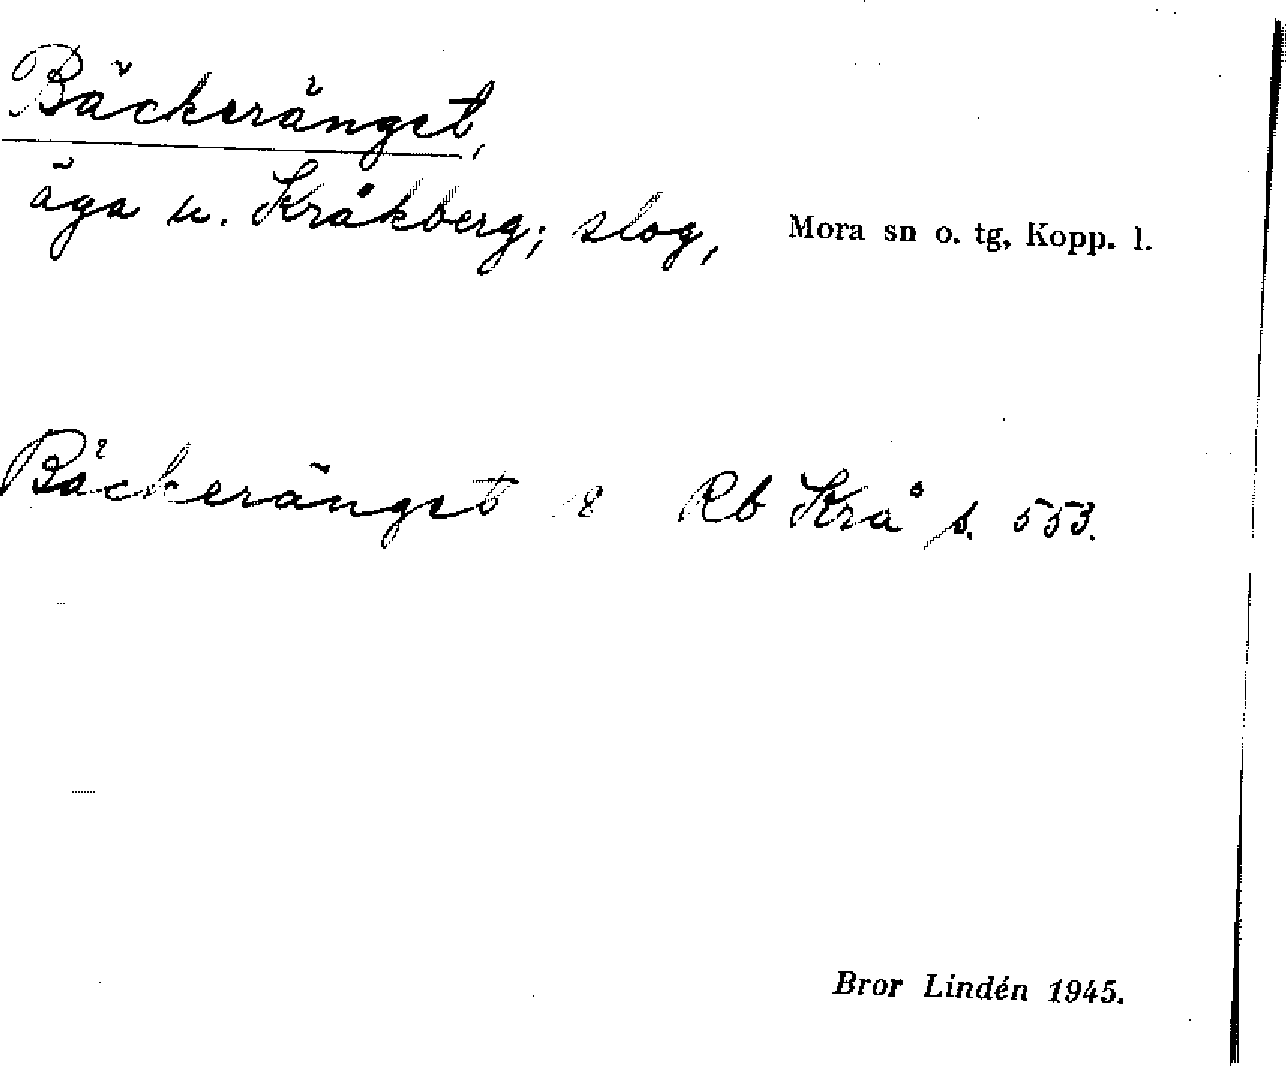 Bäckeränget,
äga u. Kråkberg; slog, Mora sn o. tg, Kopp. l.
Bäckeränget Rb Krå s. 553.
Bror Lindén 1945.